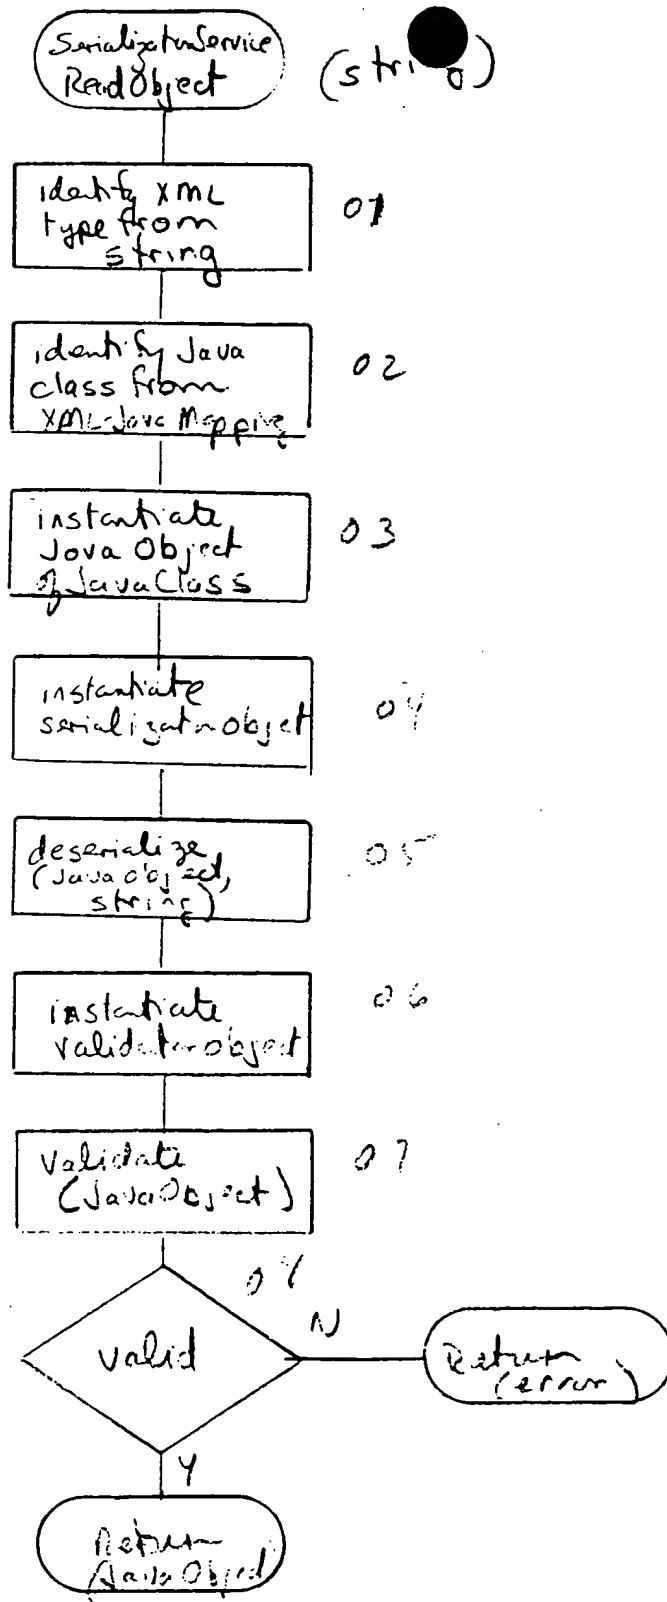 SerializationService
ReadObject
(string)
identify XML
type from
string
01
identify Java
class from
XML-Java Mapping
02
instantiate
Java Object
of JavaClass
03
instantiate
serializationObject
04
deserialize
(JavaObject,
string)
05
instantiate
validatorObject
06
validate
(JavaObject)
07
valid
N
Return
(error)
Y
Return
(JavaObject)